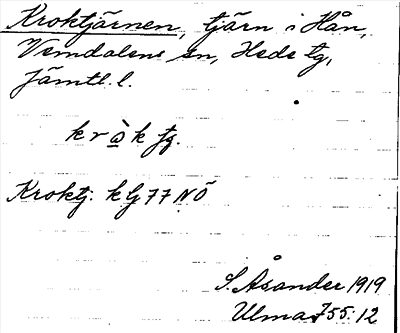 Kroktjärnen, tjärn i Hån,
Vemdalens sn, Hede tg,
Jämtl. l.
kròk tg.
Kroktj. k G 77 NÖ
S. Åsander 1919
Ulma 755:12